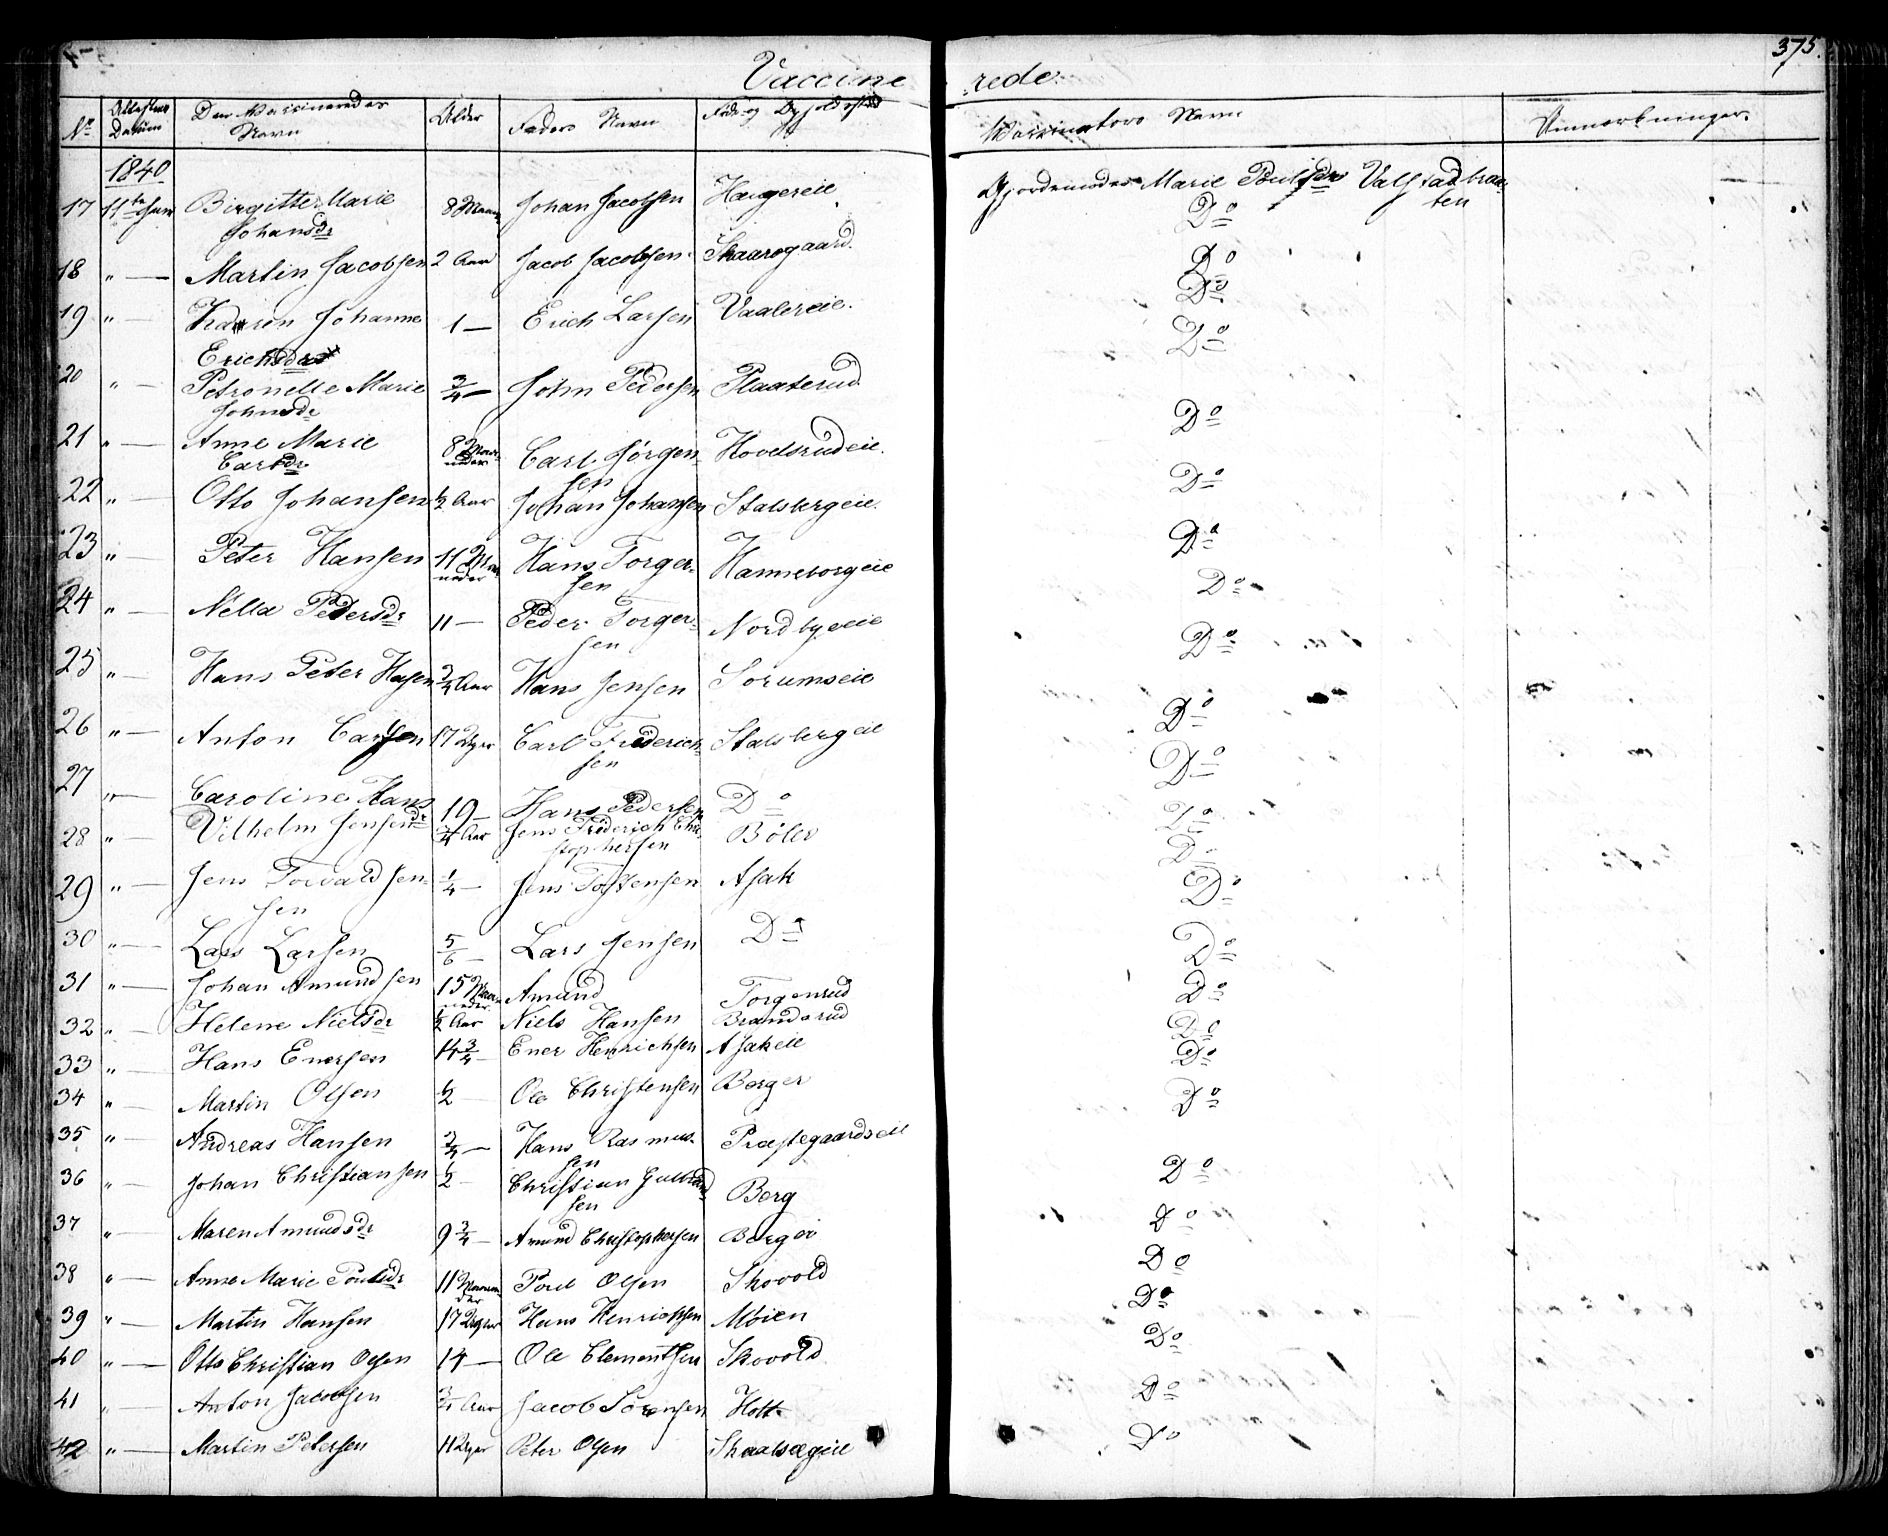 375.
Vaccine rede
No Attestens Datum Den Vaccineredes Navn Alder Faders Navn Føde og Opholdssted Vaccinators Navn Anmærkninger
1840
17 11te Juni Birgitte Marie Johansdr 8 Maan Johan Jacobsen Haugereie Gjordemoder Marie Poulsdr Valstadbraaten
18 " — Martin Jacobsen 2 Aar Jacob Jacobsen Skaarsgaard Do
19 " — Karen Johanne Erichsdr 1 — Erich Larsen Vaalereie Do
20 " — Petronelle Marie Johnsdr 3/4 — John Pedersen Plaaterud Do
21 " — Anne Marie Carlsdr 8 Maaneder Carl Jørgensen Hovelsrudeie Do
22 " — Otto Johansen 1/2 Aar Johan Johansen Stalsbergeie Do
23 " — Peter Hansen 11 Maaneder Hans Torgersen Hanneborgeie Do
24 " — Nella Pedersdr 11 — Peder Torgersen Nordbyeie Do
25 " — Hans Peter Hansen 3/4 Aar Hans Jensen Sorumseie Do
26 " — Anton Carlsen 17 Uger Carl Frederichsen Stalsbergeie Do
27 " — Caroline Hansdr 19 — Hans Pedersen Do Do
28 " — Vilhelm Jensen 3/4 Aar Jens Friderich Christophersen Bøler Do
29 " — Jens Torvald Jensen 1/4 — Jens Tostensen Asak Do
30 " — Lars Larsen 5/6 — Lars Jensen Do Do
31 " — Johan Amundsen 15 Maaneder Amund Torgenrud Do
32 " — Helene Nielsdr 1/2 Aar Niels Hansen Brandsrud Do
33 " — Hans Enersen 14 3/4 — Ener Henrichsen Asakeie Do
34 " — Martin Olsen 1/2 — Ole Christensen Berger Do
35 " — Andreas Hansen 3/4 — Hans Rasmussen Præstegaardseie Do
36 " — Johan Christiansen 1/2 — Christian Gulbrandsen Berg Do
37 " — Maren Amundsdr 9 3/4 — Amund Christophersen Berger Do
38 " — Anne Marie Poulsdr 11 Maaneder Poul Olsen Skovold Do
39 " — Martin Hansen 17 Uger Hans Henrichsen Møien Do
40 " — Otto Christian Olsen 14 — Ole Clementsen Skovold Do
41 " — Anton Jacobsen 3/4 Aar Jacob Sørensen Holt Do
42 " — Martin Petersen 11 Uger Peter Olsen Do